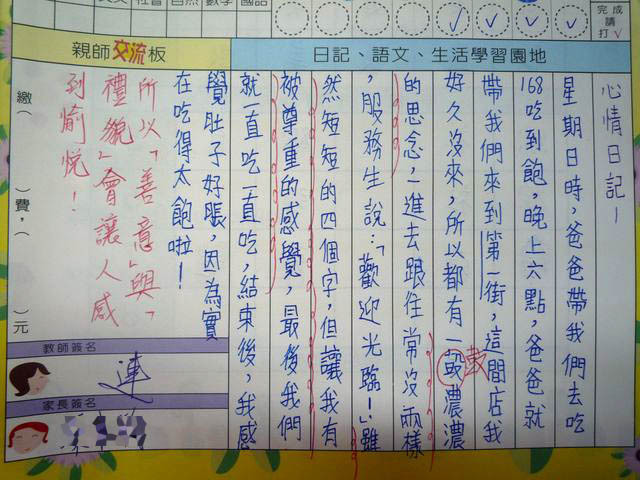 社會 自然 數學 國語
完成
請
打√
日記、語文、生活學習園地
親師交流板
心情日記—
星期日時,爸爸帶我們去吃
168吃到飽,晚上六點,爸爸就
帶我們來到第一街,這間店我
好久沒來,所以都有一毀濃濃
的思念,一進去跟往常沒兩樣
,服務生說:「歡迎光臨!」雖
然短短的四個字,但讓我有
被尊重的感覺,最後我們
就一直吃一直吃,結束後,我感
覺肚子好脹,因為實
在吃得太飽啦!
所以「善意」與「
禮貌」會讓人感
到愉悅!
繳( )費,( )元
教師簽名
連
家長簽名